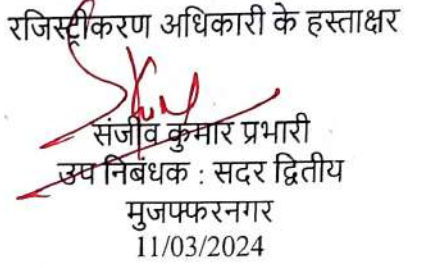 रजिस्ट्रीकरण अधिकारी के हस्ताक्षर
संजीव कुमार प्रभारी
उप निबंधक : सदर द्वितीय
मुजफ्फरनगर
11/03/2024